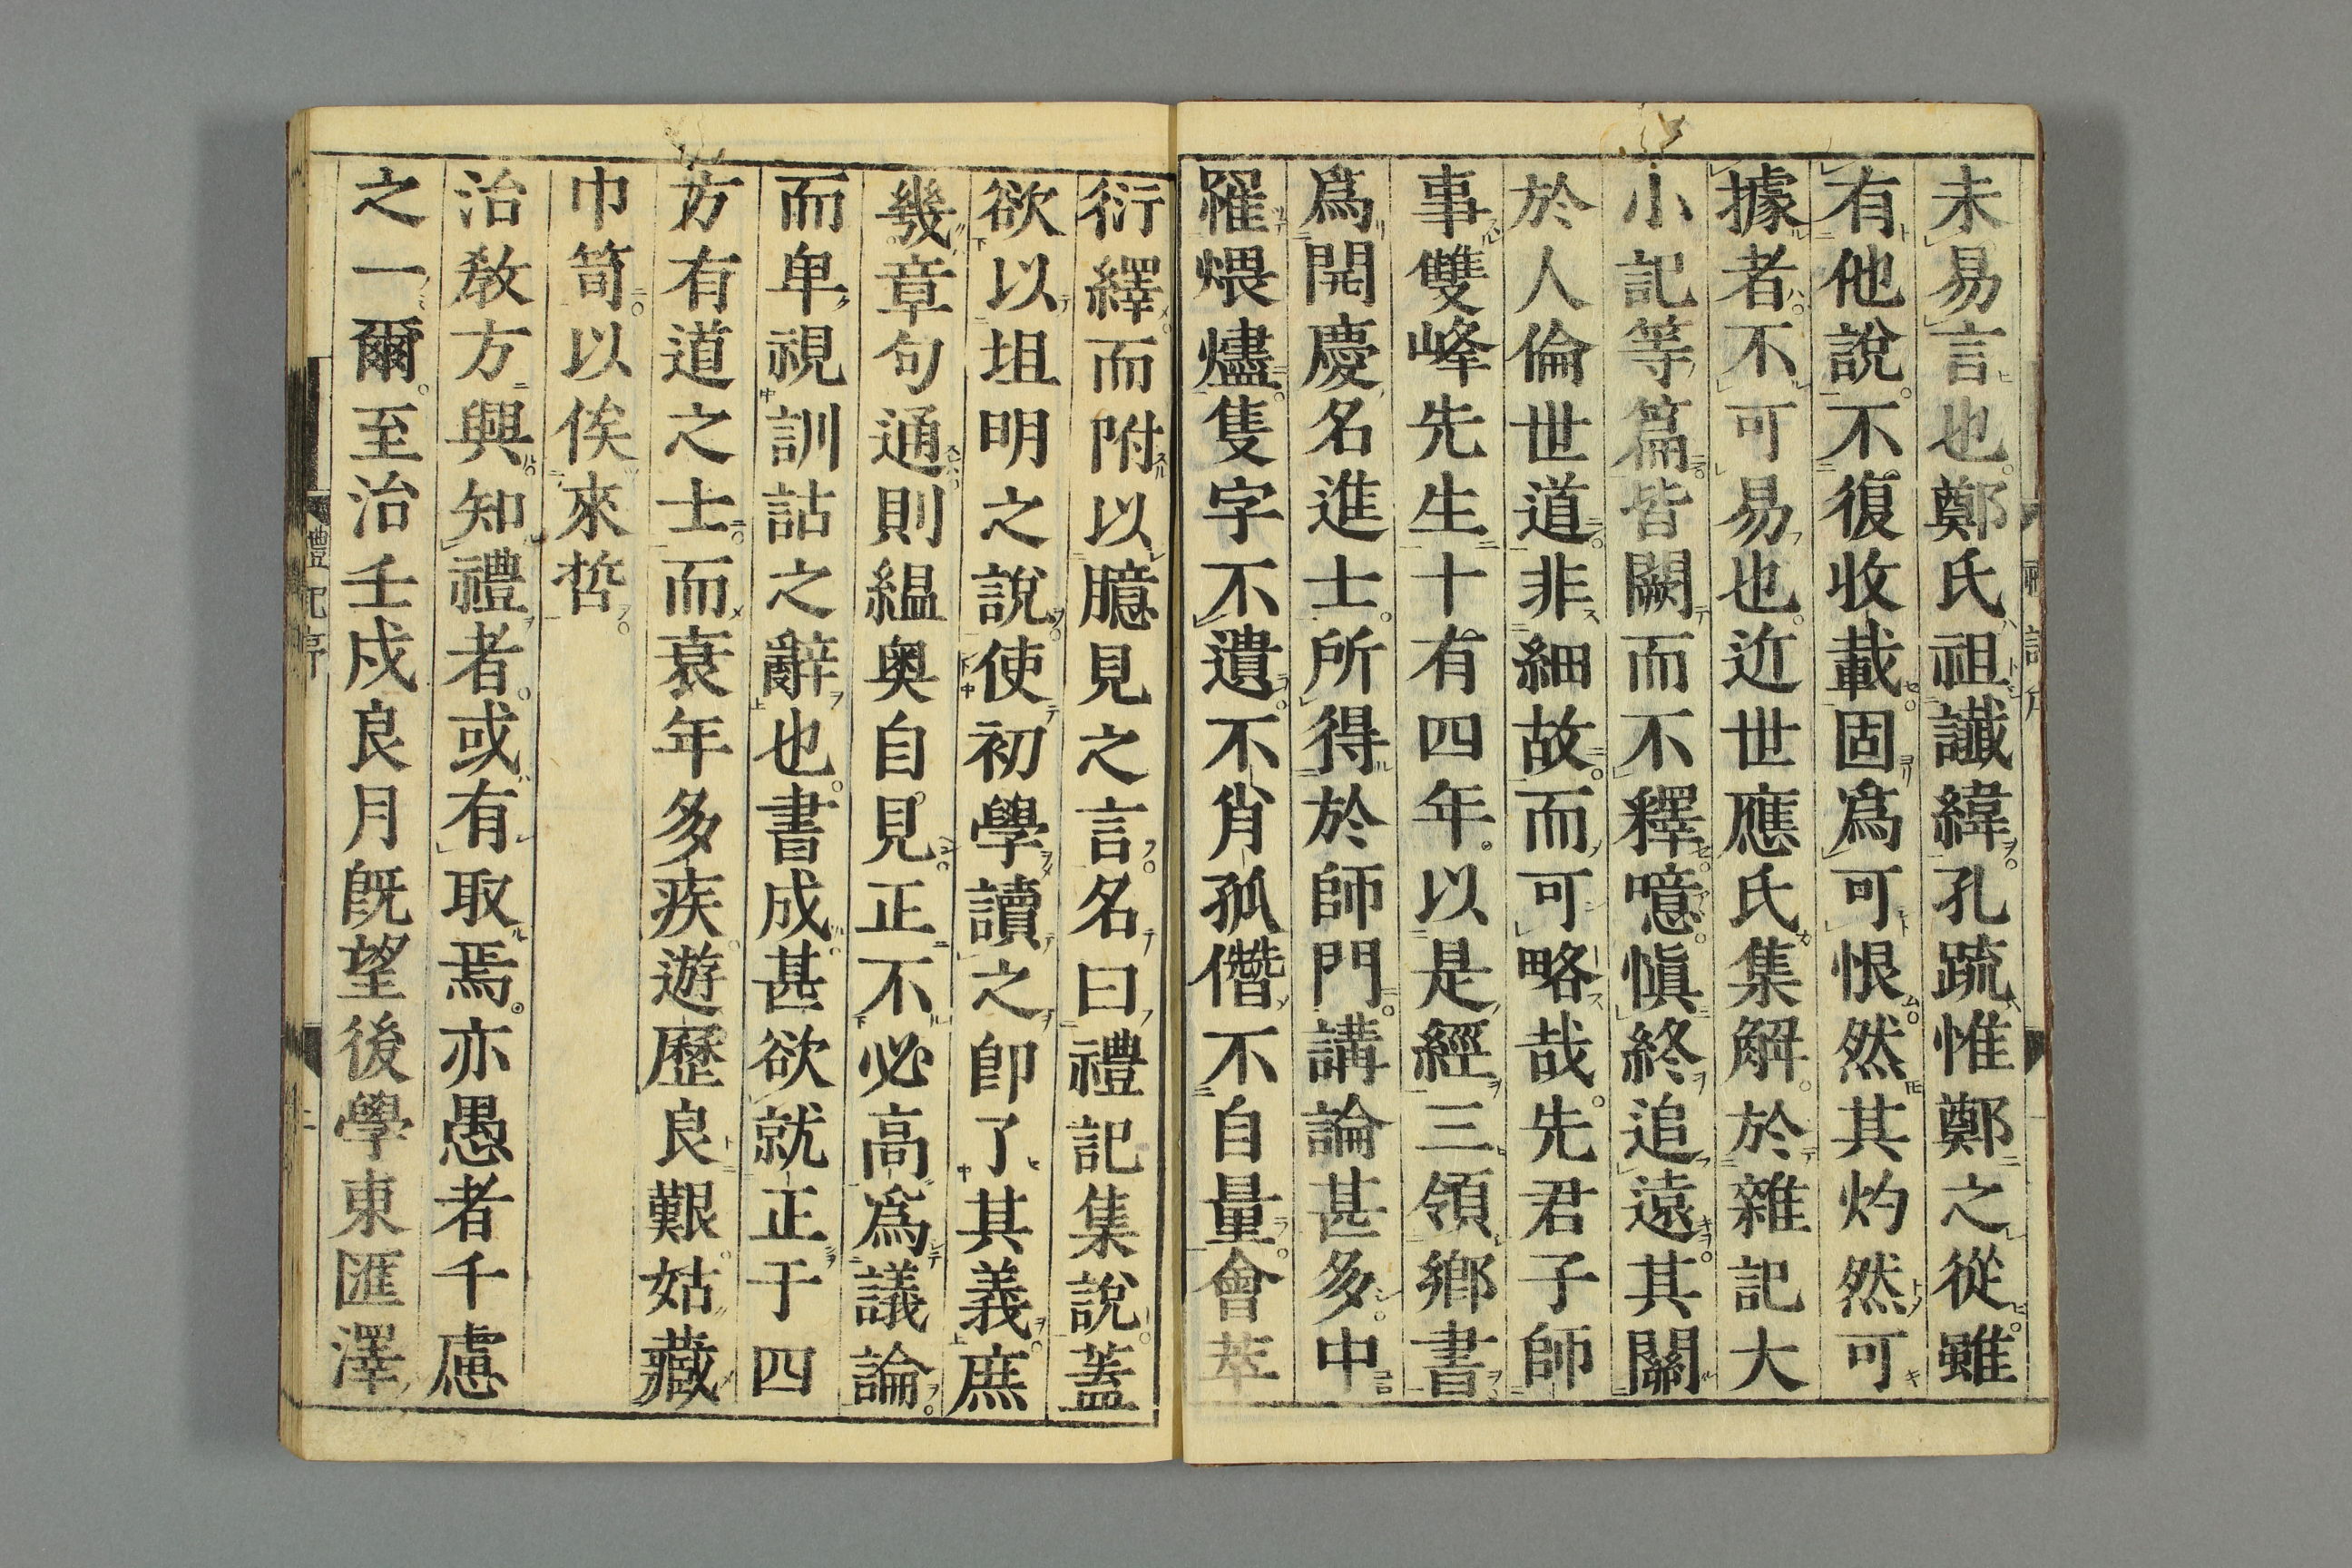 未易言也鄭氏祖讖緯孔疏惟鄭之從雖
有他說不復收載固爲可恨然其灼然可
據者不可易也近世應氏集解於雜記大
小記等篇皆闕而不釋噫愼終追遠其關
於人倫世道非細故而可略哉先君子師
事雙峰先生十有四年以是經三領鄉書
爲開慶名進士所得於師門講論甚多中
罹煨燼隻字不遺不肖孤僭不自量會萃
衍繹而附以臆見之言名曰禮記集說蓋
欲以坦明之說使初學讀之卽了其義庶
幾章句通則縕奧自見正不必高爲議論
而卑視訓詁之辭也書成甚欲就正于四
方有道之士而衰年多疾遊歷良艱姑藏
巾笥以俟來哲
治敎方興知禮者或有取焉亦愚者千慮
之一爾至治壬戌良月旣望後學東匯澤
禮記序